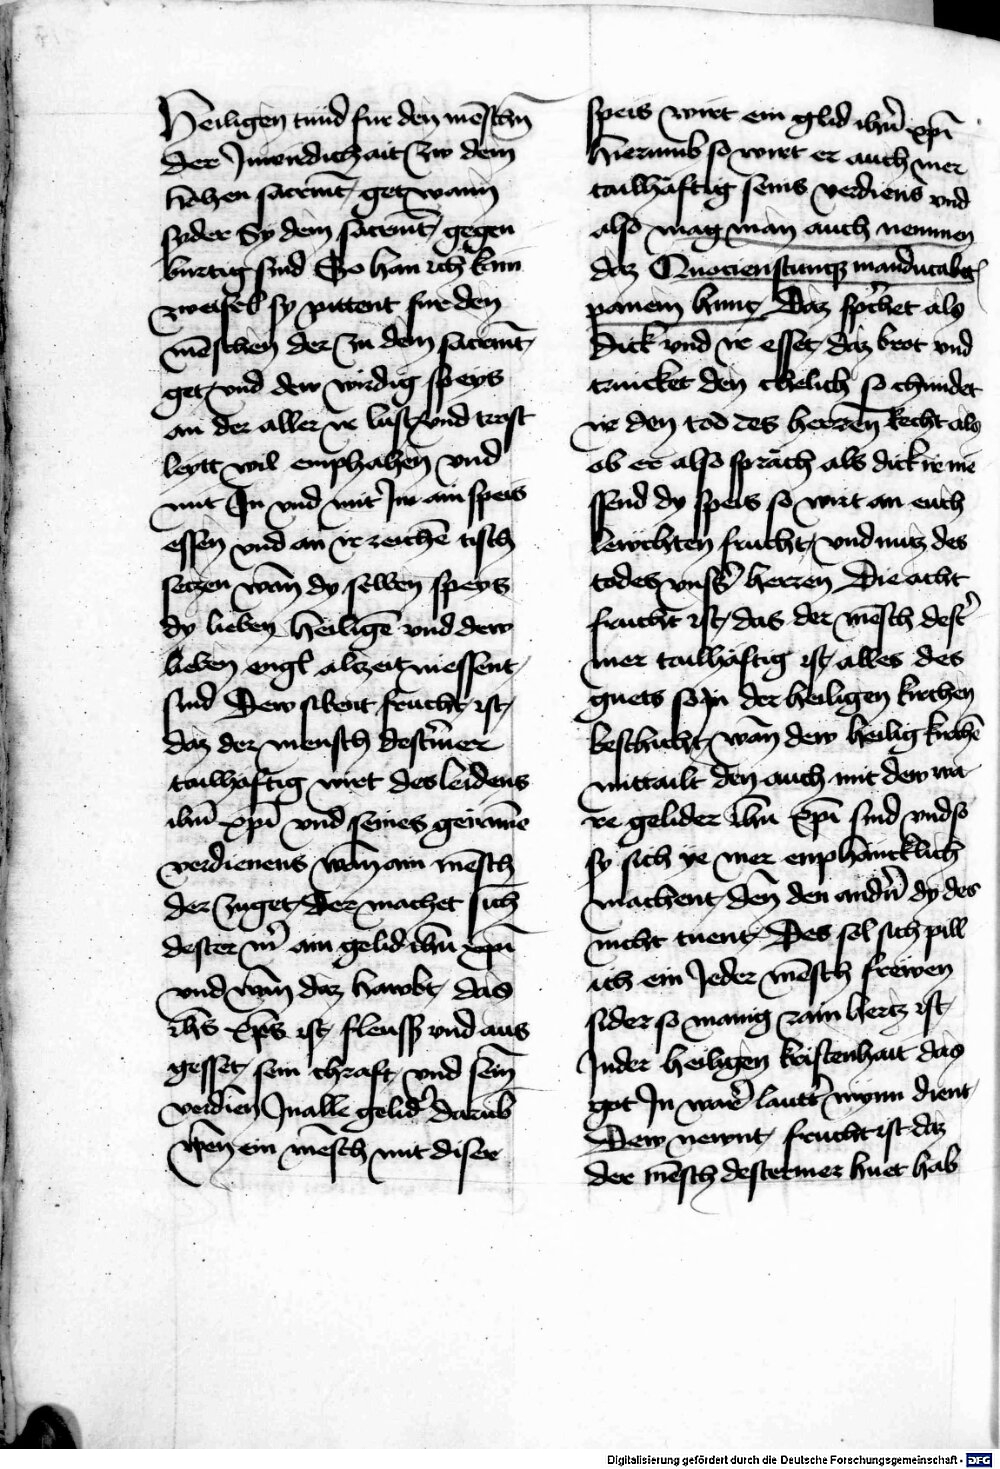 Heiligen tuͤnd fur den mēschn̄
der Inwendichait zw dem
hahen sacramt̄ get wann
syder Sy dem sacramt̄ gegen
burtig sind So han ich kain
zweifel sy pittent fur den
mēschen der zu dem sacramt̄
get vnd dew wirdig speys
an der aller ir lust vnd trost
leytt wil emphahen vnd
mit In vnd mit Im ain speis
essen vnd an ir reichē tisch
seczen wān dy selben speys
dy lieben Heiligē vnd dew
lieben engl̄ alczeit niessent
sind Dew sibent frucht ist
daz der mensch destm̄er
tailhaftig wirt des leidens
ihū xp̄i vnd seines gemaine
verdienens wān ain mēsch
der zuget der machet sich
dester m̄ ain gelid ihū xp̄i
vnd wān daz hawbt das
ihs xp̄s ist fleuss vnd aus
gesset sein chraft vnd sein
verdien In alle gelid̄ darūb
wen ein mēsch mit diser
speis wirt ein glid ihū xp̄i
hierumb so wirt er auch mer
tailhaftig seins verdiens vnd
also mag man auch nemmen
daz Quocienscunqz manducabit̄
panem hunc Daz sp̄chet als
dick vnd ir esset daz brot vnd
trincket den chelich so chundet
ir den tod des herren Recht als
ob er also sprach als dick ir nie
ssend dy speis so wirt an euch
lewchten frucht vnd nutz des
todes vnss̄ herren Die acht
frucht ist das der mēsch dest̄
mer tailhaftig ist alles des
guets so in der heiligen kirchen
beschicht wān dew heilig kirchē
mittailt den auch mit dew wa
re gelider ihū xp̄i sind vnd so
sy sich ye mer enphāncklich
machent den̄ den andn̄ dy des
nicht tuent Des sol sich pill
ich ein Jeder mēsch frewen
sider so manig rain hertz ist
In der heiligen kristenhait das
got In warē lautt̄ mynn dient
Dew newnt frucht ist daz
der mēsch dester mer huet hab
Digitalisierung gefördert durch die Deutsche Forschungsgemeinschaft - DFG